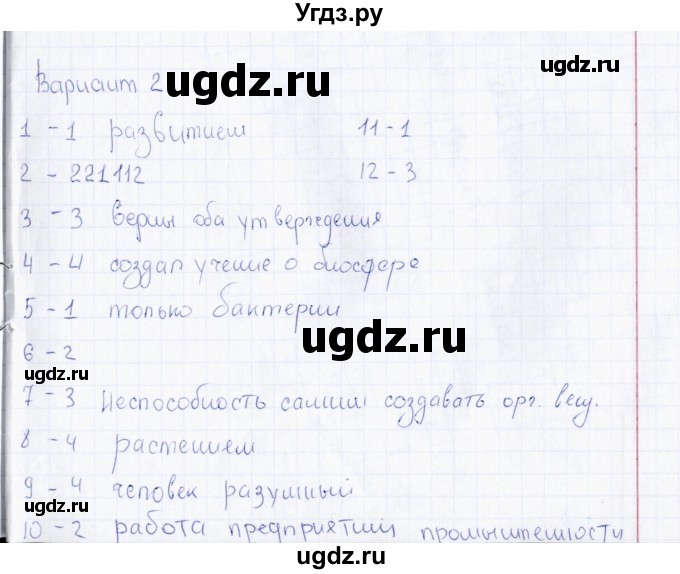 Угдз.ру
ugdz.ru
Вариант 2 ugdz.ru
1 - 1 развитием 11 - 1
2 - 221112 12 - 3
3 - 3 верны оба утверждения
4 - 4 создал учение о биосфере
5 - 1 только бактерии
ugdz.ru
6 - 2
ugdz.ru
7 - 3 Неспособность самим создавать орг. вещ.
8 - 4 растением
9 - 4 человек разумный
ugdz.ru
10 - 2 работа предприятий промышленности
ugdz.ru